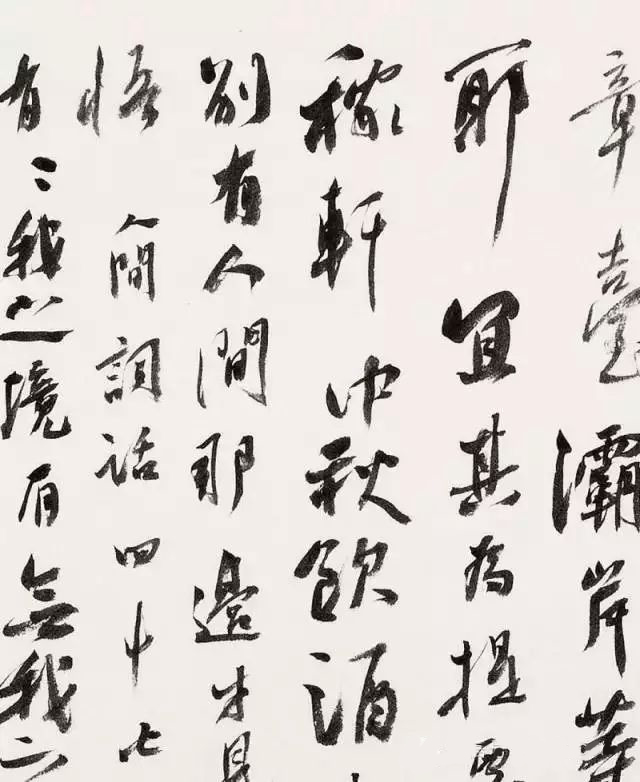 章臺灞岸等
耶宜其為提要
稼軒中秋飲酒
別有人間那邊才見
悟人間詞話四十七
有〻我之境有無我之